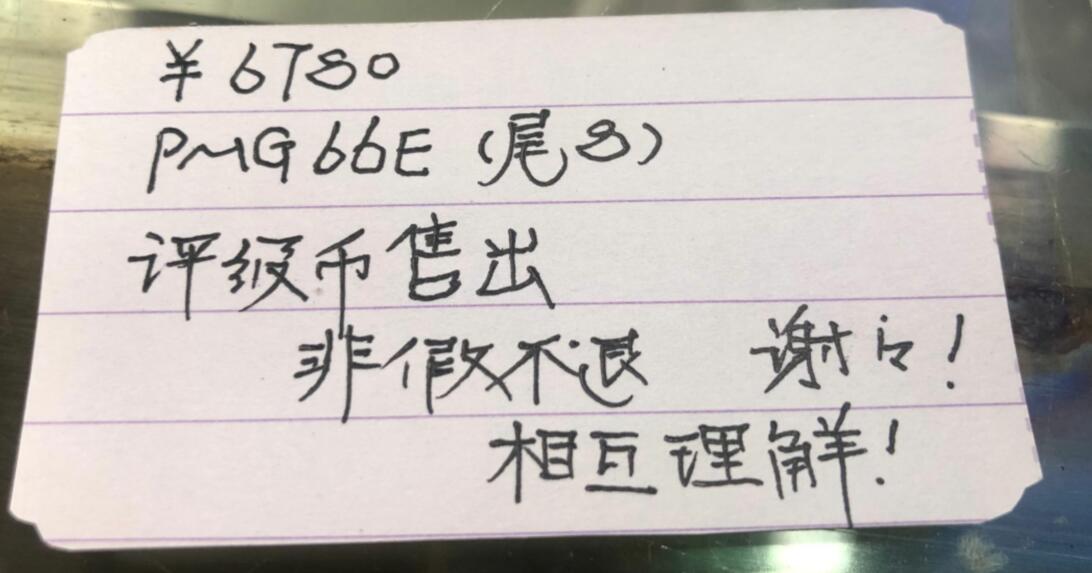 ¥6780
PMG66E(尾8)
评级币售出
非假不退 谢々!
相互理解!